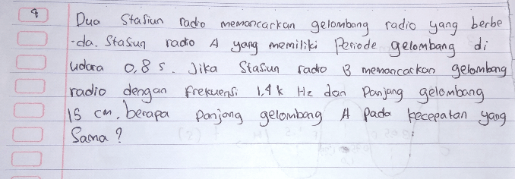 4 Dua Stasiun radio memancarkan gelombang radio yang berbe
-da. Stasun radio A yang memiliki Periode gelombang di
udara 0,8 s. Jika Stasun radio B memancarkan gelombang
radio dengan frekuensi 1,4 k Hz dan Panjang gelombang
15 cm. berapa panjang gelombang A pada kecepatan yang
Sama ?